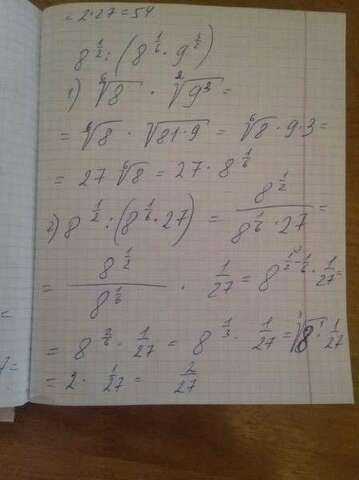 = 2·27 = 54
8^{1/2} : (8^{1/6} · 9^{3/2})
1) ⁶√8 · ²√9³ =
= ⁶√8 · √81·9 = ⁶√8 · 9 · 3 =
= 27 ⁶√8 = 27 · 8^{1/6}
2) 8^{1/2} : (8^{1/6} · 27) = 8^{1/2} / (8^{1/6} · 27) =
= 8^{1/2} / 8^{1/6} · 1/27 = 8^{1/2 - 1/6} · 1/27 =
= 8^{2/6} · 1/27 = 8^{1/3} · 1/27 = ³√8 · 1/27
= 2 · 1/27 = 2/27